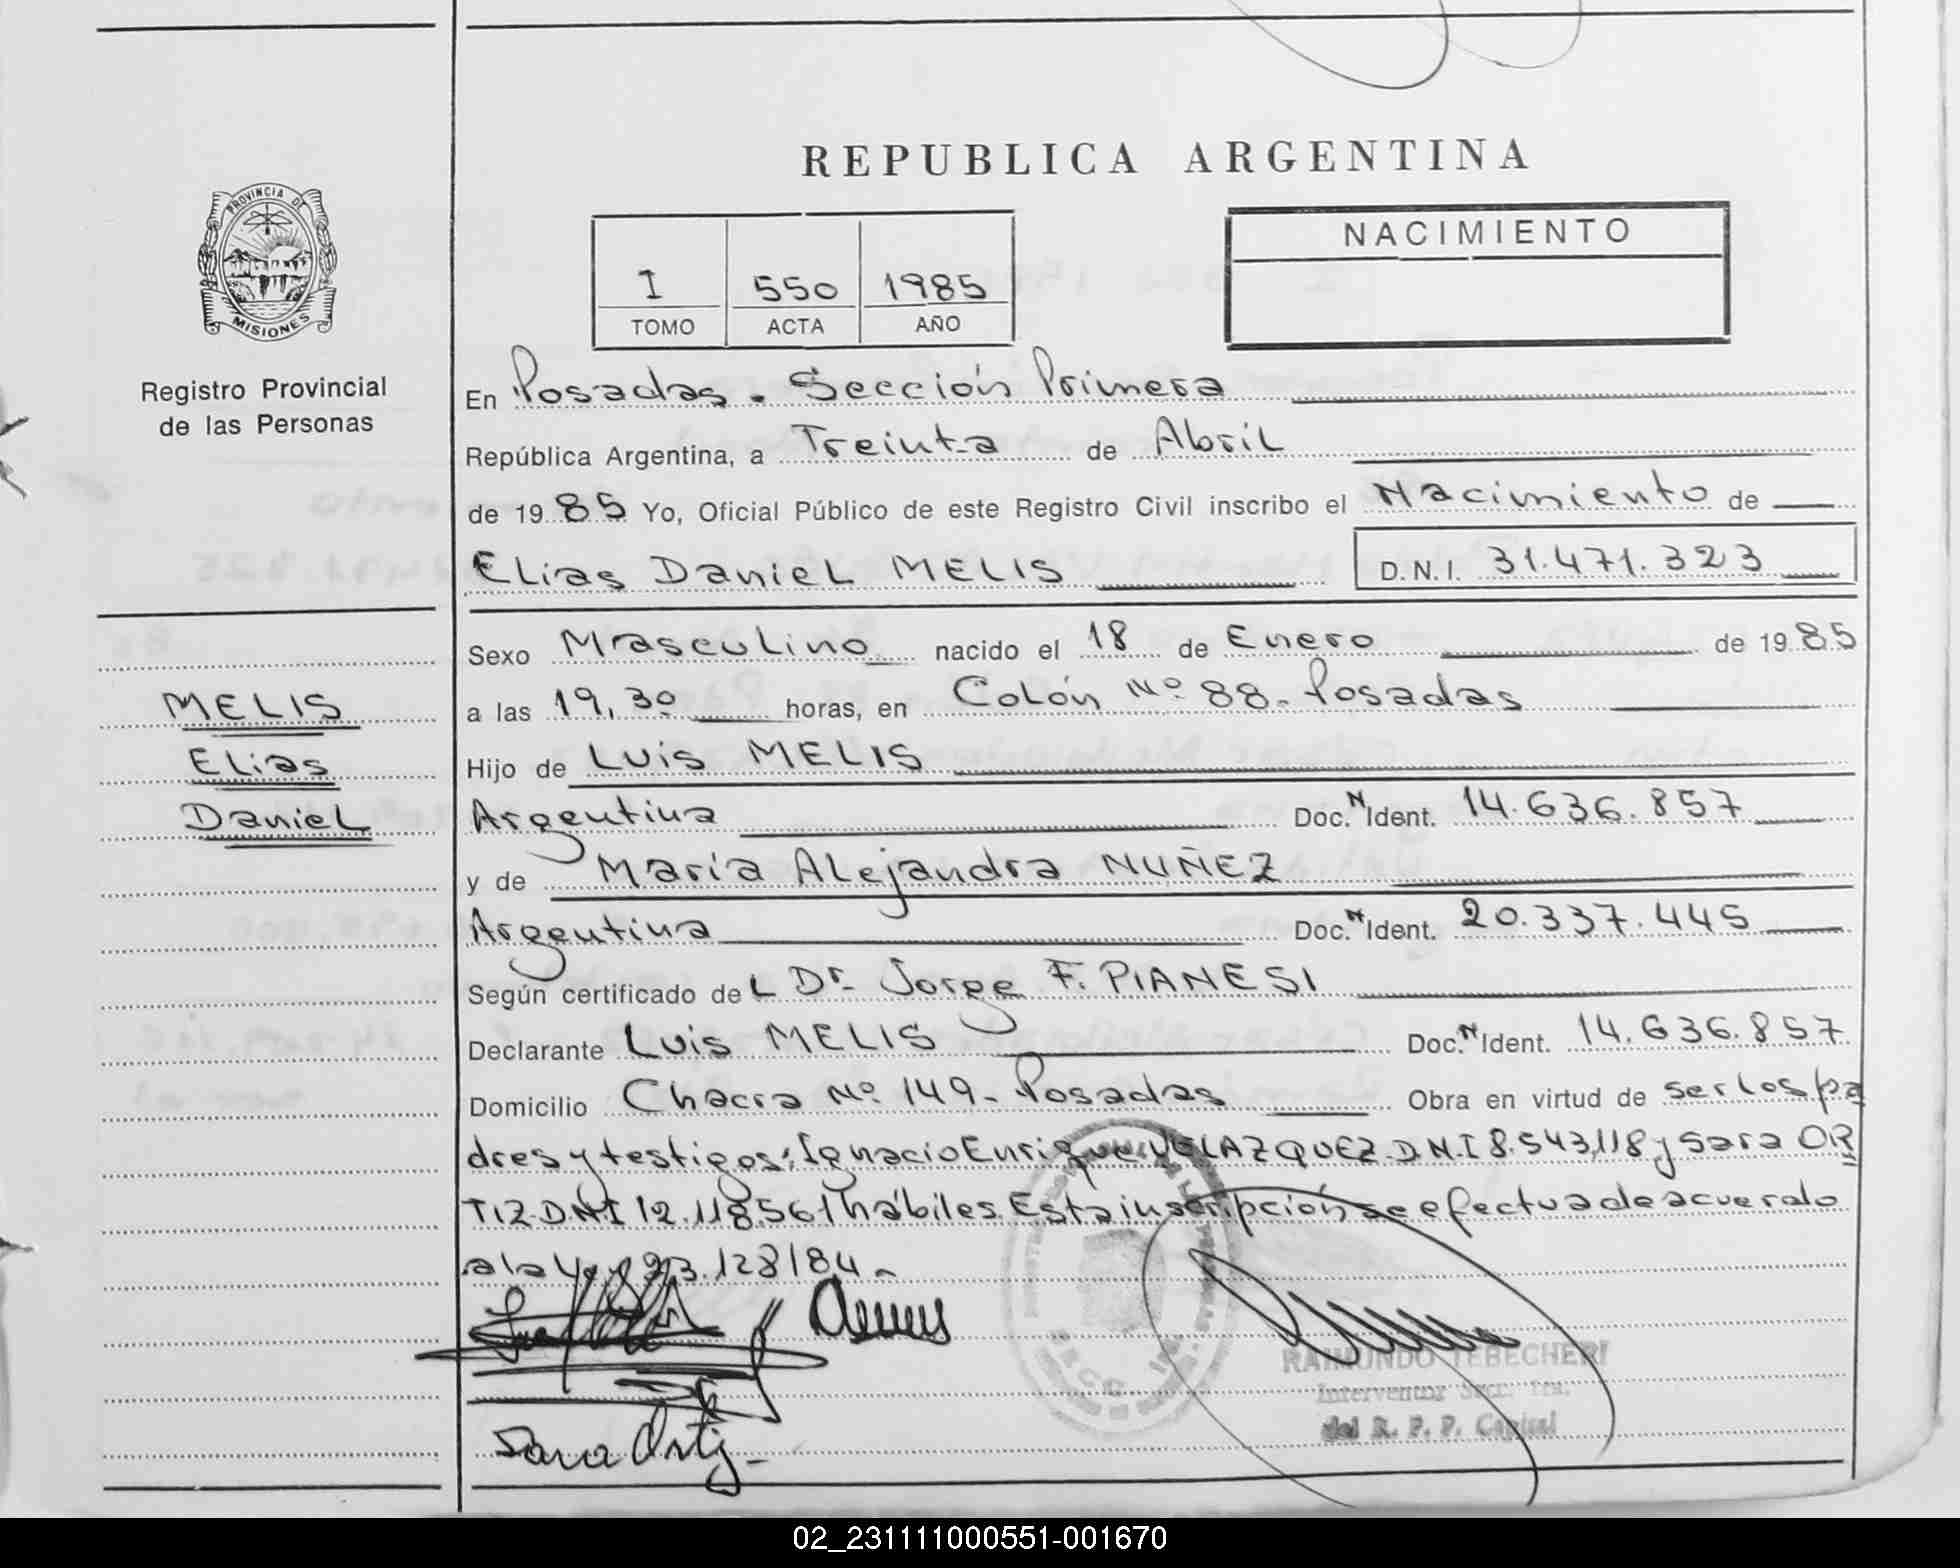 REPUBLICA ARGENTINA
PROVINCIA DE
MISIONES
Registro Provincial
de las Personas
NACIMIENTO
I 550 1985
TOMO ACTA AÑO
En Posadas. Sección Primera
República Argentina, a Treinta de Abril
de 1985 Yo, Oficial Público de este Registro Civil inscribo el Nacimiento de
Elias Daniel MELIS D.N.I. 31.471.323
MELIS
Elias
Daniel
Sexo Masculino nacido el 18 de Enero de 1985
a las 19,30 horas, en Colón Nº 88. Posadas
Hijo de Luis MELIS
Argentina Doc. N Ident. 14.636.857
y de María Alejandra NUÑEZ
Argentina Doc. N Ident. 20.337.445
Según certificado del Dr. Jorge F. PIANESI
Declarante Luis MELIS Doc. N Ident. 14.636.857
Domicilio Chacra Nº 149. Posadas Obra en virtud de ser los pa
dres y testigos: Ignacio Enrique VELAZQUEZ. D.N.I 8.543,118 y Sara OR
TIZ. D.N.I 12.118.561 hábiles. Esta inscripción se efectua de acuerdo
a la Ley 23.128/84.
Sara Ortiz
RAIMUNDO TEBECHERI
Interventor Secc. 1ra.
del R. P. P. Capital
02_231111000551-001670